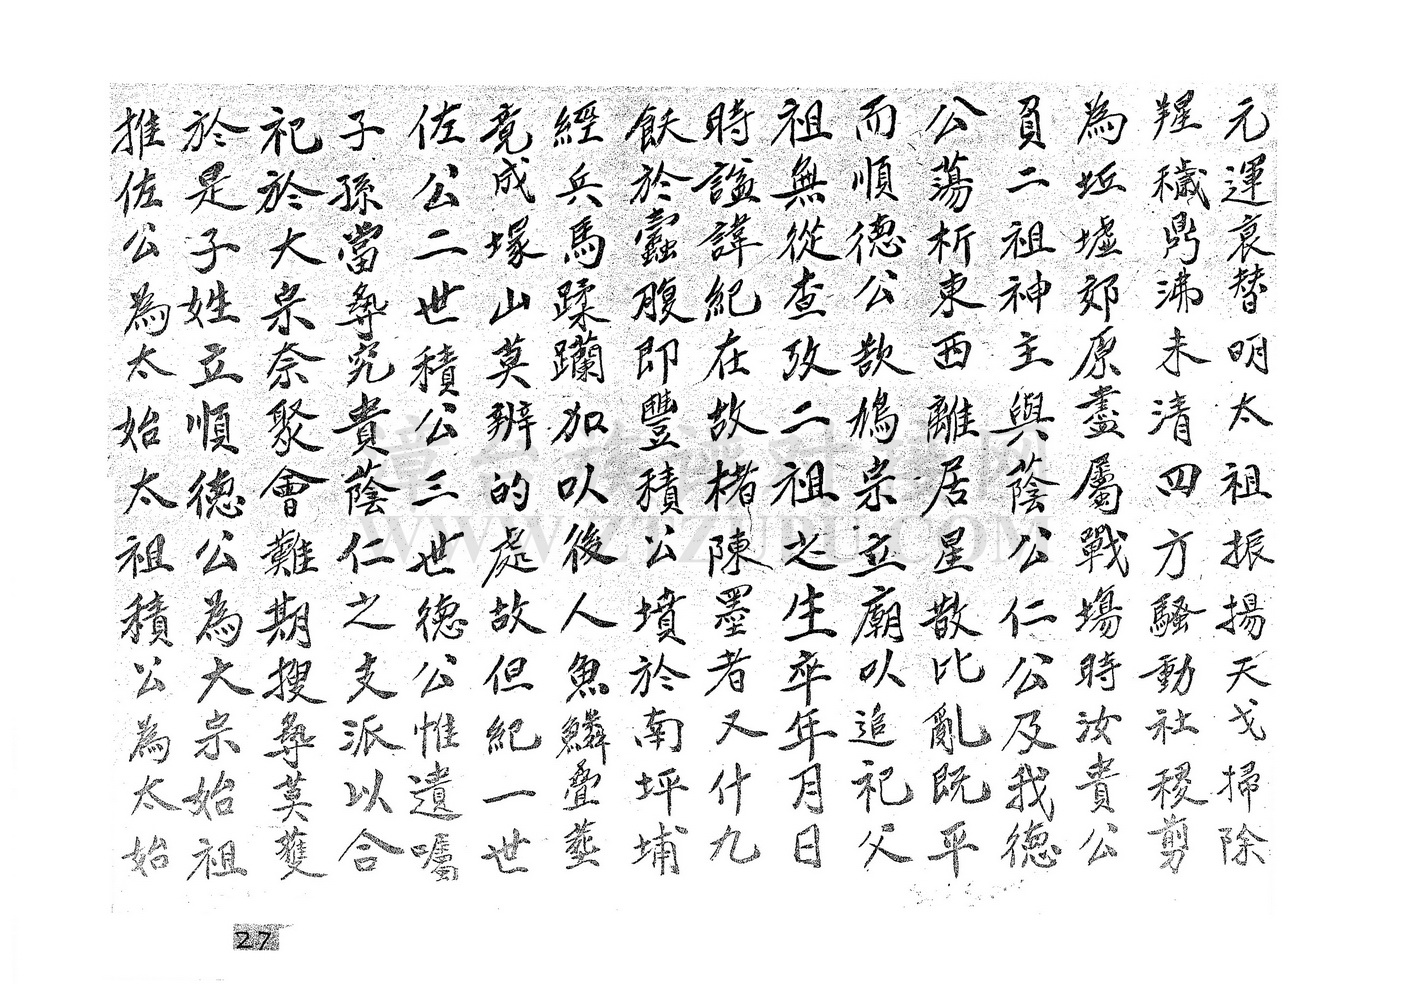 元運衰替明太祖振揚天戈掃除
羶穢鼎沸未清四方騷動社稷剪
為坵墟郊原盡屬戰塲時汝貴公
負二祖神主與蔭公仁公及我德
公蕩析東西離居星散比亂既平
而順德公歆鳩宗立廟以追祀父
祖無從查攷二祖之生卒年月日
時諡諱紀在故楮陳墨者又什九
飫於蠹腹即豐積公墳於南坪埔
經兵馬蹂躪加以後人魚鱗疊塟
竟成塚山莫辨的處故但紀一世
佐公二世積公三世德公惟遺囑
子孫當尋究貴蔭仁之支派以合
祀於大宗奈聚會難期搜尋莫獲
於是子姓立順德公為大宗始祖
推佐公為太始太祖積公為太始
27
漳台族譜對接网
WWW.ZTZUPU.COM